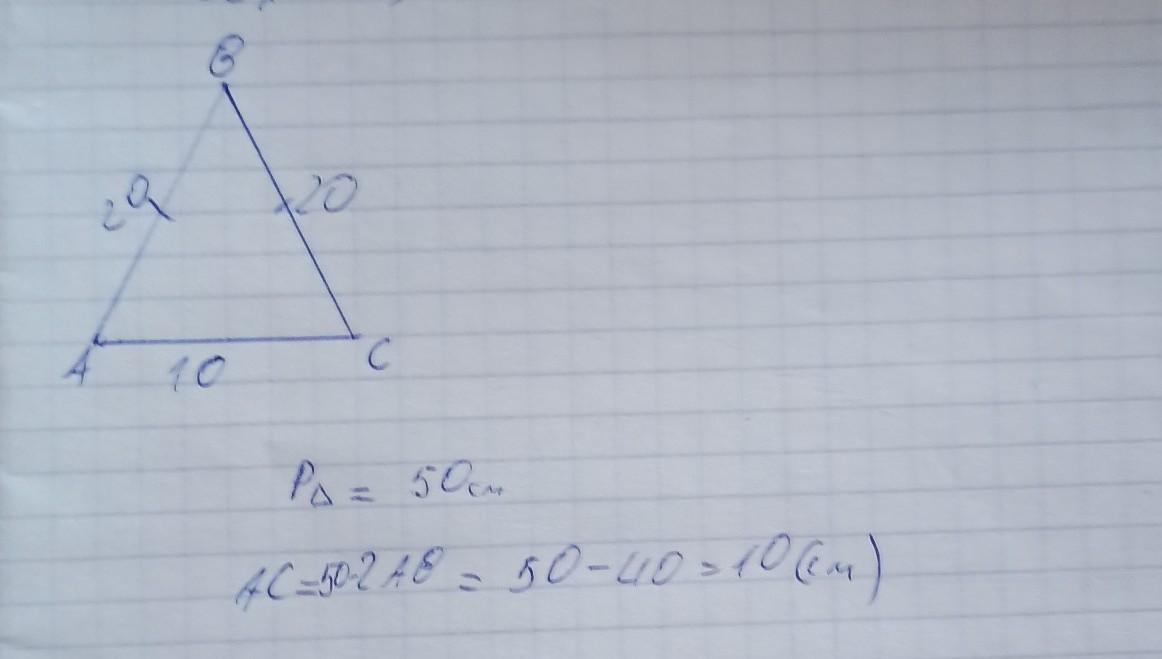 В
20 20
А 10 С
P△ = 50см
AC=50-2AB = 50-40=10(см)